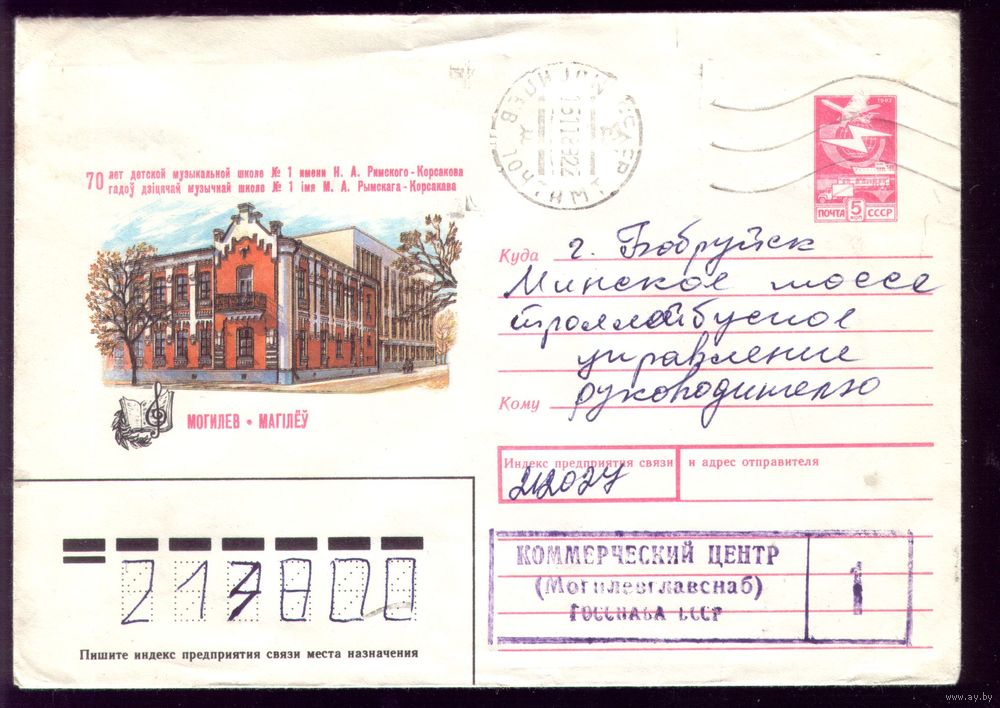 70 лет детской музыкальной школе № 1 имени Н. А. Римского-Корсакова
гадоў дзіцячай музычнай школе № 1 імя М. А. Рымскага-Корсакава
МОГИЛЕВ • МАГІЛЁЎ
1982
ПОЧТА 5 КОП СССР
Куда г. Бобруйск
Минское шоссе
троллейбусное
управление
Кому руководителю
Индекс предприятия связи и адрес отправителя
212027
КОММЕРЧЕСКИЙ ЦЕНТР
(Могилевглавснаб)
ГОССНАБА СССР
1
213800
Пишите индекс предприятия связи места назначения
www.ay.by